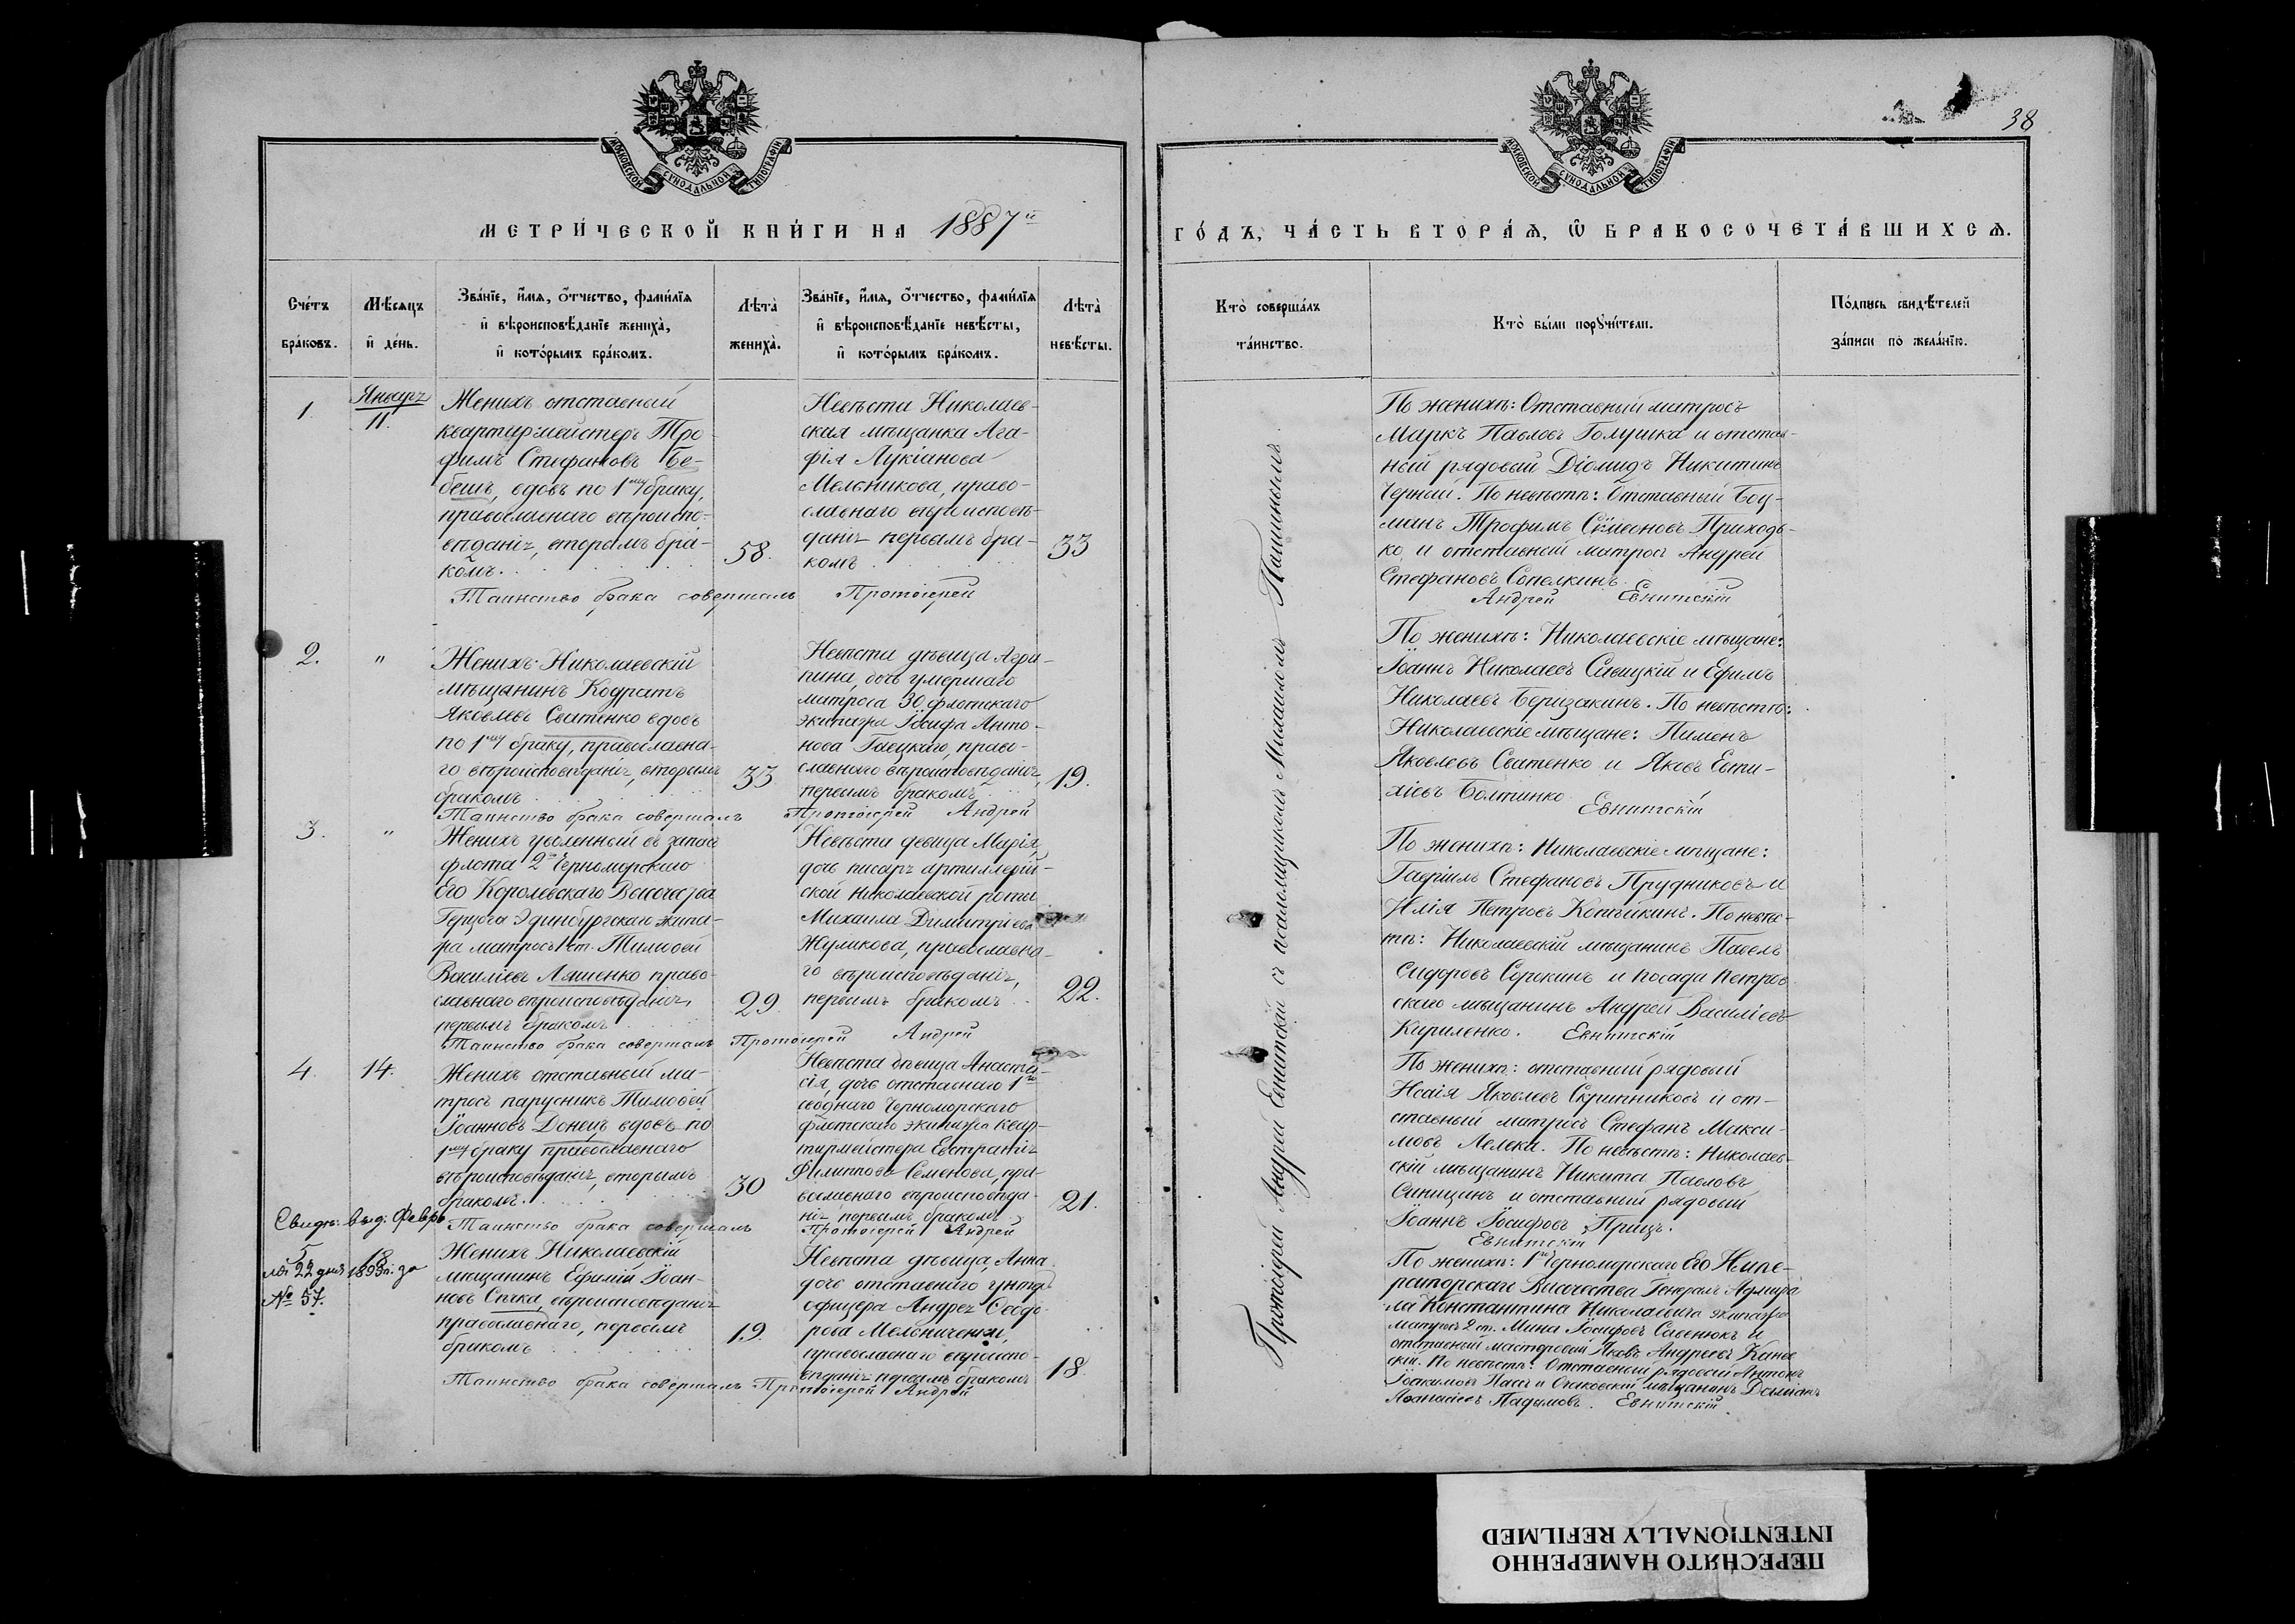 МОСКОВСКОЙ СѴНОДАЛЬНОЙ ТИПОГРАФІИ
МЕТРИ́ЧЕСКОЙ КНИ́ГИ НА 1887й
Сче́тъ бра́ковъ.
Мѣ́сяцъ и҆ де́нь.
Зва́нїе, и҆́мѧ, о҆́тчество, фами́лїѧ
и҆ вѣроисповѣ́данїе жениха̀,
и҆ кото́рымъ бра́комъ.
Лѣта̀ жениха̀.
Зва́нїе, и҆́мѧ, о҆́тчество, фами́лїѧ
и҆ вѣроисповѣ́данїе невѣ́сты,
и҆ кото́рымъ бра́комъ.
Лѣта̀ невѣ́сты.
1.
Январь
11.
Женихъ отставный
квартирмейстеръ Тро-
фимъ Стефановъ Бе-
бешъ, вдовъ по 1му браку,
православнаго вѣроиспо-
вѣданія, вторымъ бра-
комъ.
58.
Невѣста Николаев-
ская мѣщанка Ага-
фія Лукіанова
Мельникова, право-
славнаго вѣроисповѣ-
данія первымъ бра-
комъ
33
Таинство брака совершалъ Протоіерей
2.
"
Женихъ Николаевскій
мѣщанинъ Кодратъ
Яковлевъ Сватенко вдовъ
по 1му браку, православна-
го вѣроисповѣданія, вторымъ
бракомъ
33
Невѣста дѣвица Агри-
пина, дочь умершаго
матроса 30 флотскаго
экипажа Іосифа Анто-
нова Гаецкаго, право-
славнаго вѣроисповѣданія,
первымъ бракомъ
19.
Таинство брака совершалъ Протоіерей Андрей
3.
"
Женихъ уволенный въ запасъ
флота 2го Черноморскаго
Его Королевскаго Высочества
Герцога Эдинбургскаго экипа-
жа матросъ ст. Тимофей
Василіевъ Ляшенко право-
славнаго вѣроисповѣданія,
первымъ бракомъ
29
Невѣста дѣвица Марія,
дочь писаря артиллерій-
ской Николаевской роты
Михаила Димитріева
Жуликова, православна-
го вѣроисповѣданія,
первымъ бракомъ
22.
Таинство брака совершалъ Протоіерей Андрей
4.
14.
Женихъ отставный ма-
тросъ парусникъ Тимофей
Іоанновъ Донецъ вдовъ по
1му браку православнаго
вѣроисповѣданія, вторымъ
бракомъ.
30
Невѣста дѣвица Анаста-
сія, дочь отставнаго 1го
своднаго Черноморскаго
флотскаго экипажа квар-
тирмейстера Евстратія
Филиппова Семенова, пра-
вославнаго вѣроисповѣда-
нія первымъ бракомъ
21.
Таинство брака совершалъ Протоіерей Андрей
Свидѣт. выд. Февр
5
18
22 дня 1893 г. за
№ 57.
Женихъ Николаевскій
мѣщанинъ Ефимій Іоан-
новъ Сѣчка, вѣроисповѣданія
православнаго, первымъ
бракомъ
19.
Невѣста дѣвица Анна
дочь отставнаго унтеръ
офицера Андрея Ѳедо-
рова Мельниченки,
православнаго вѣроиспо-
вѣданія первымъ бракомъ
18
Таинство брака совершалъ Протоіерей Андрей
38
МОСКОВСКОЙ СѴНОДАЛЬНОЙ ТИПОГРАФІИ
ГО́ДЪ, ЧА́СТЬ ВТОРА́Ѧ, Ѡ҆ БРАКОСОЧЕТА́ВШИХСѦ.
Кто̀ соверша́лъ та́инство.
Кто̀ бы́ли порꙋчи́тели.
По́дпись свидѣ́телей за́писи по жела́нїю.
Протоіерей Андрей Евнитскій съ псаломщикомъ Михаиломъ
По женихѣ: Отставный матросъ
Маркъ Павловъ Голушка и отстав-
ный рядовый Діомидъ Никитинъ
Черный. По невѣстѣ: Отставный боц-
манъ Трофимъ Симеоновъ Приходь-
ко и отставный матросъ Андрей
Стефановъ Сопелкинъ.
Андрей Евнитскій
По женихѣ: Николаевскіе мѣщане:
Іоаннъ Николаевъ Савицкій и Ефимъ
Николаевъ Беризакинъ. По невѣстѣ:
Николаевскіе мѣщане: Пименъ
Яковлевъ Сватенко и Яковъ Евти-
хіевъ Болтинко
Евнитскій
По женихѣ: Николаевскіе мѣщане:
Гавріилъ Стефановъ Прудниковъ и
Илія Петровъ Копѣйкинъ. По невѣс-
тѣ: Николаевскій мѣщанинъ Павелъ
Сидоровъ Сорокинъ и посада Петров-
скаго мѣщанинъ Андрей Василіевъ
Кириленко. Евнитскій
По женихѣ: отставный рядовый
Исаія Яковлевъ Скрипниковъ и от-
ставный матросъ Стефанъ Макси-
мовъ Лелека. По невѣстѣ: Николаев-
скій мѣщанинъ Никита Павловъ
Синицинъ и отставный рядовый
Іоаннъ Іосифовъ Прицъ.
Евнитскій
По женихѣ: 1го Черноморскаго Его Импе-
раторскаго Высочества Генералъ Адмира-
ла Константина Николаевича экипажа
матросъ 2 ст. Мина Іосифовъ Савенюкъ и
отставный мастеровый Яковъ Андреевъ Канев-
скій. По невѣстѣ: Отставный рядовый Антонъ
Іоакимовъ Пасъ и Очаковскій мѣщанинъ Даміанъ
Афанасіевъ Падымовъ. Евнитскій
ПЕРЕСНЯТО НАМЕРЕННО
INTENTIONALLY REFILMED